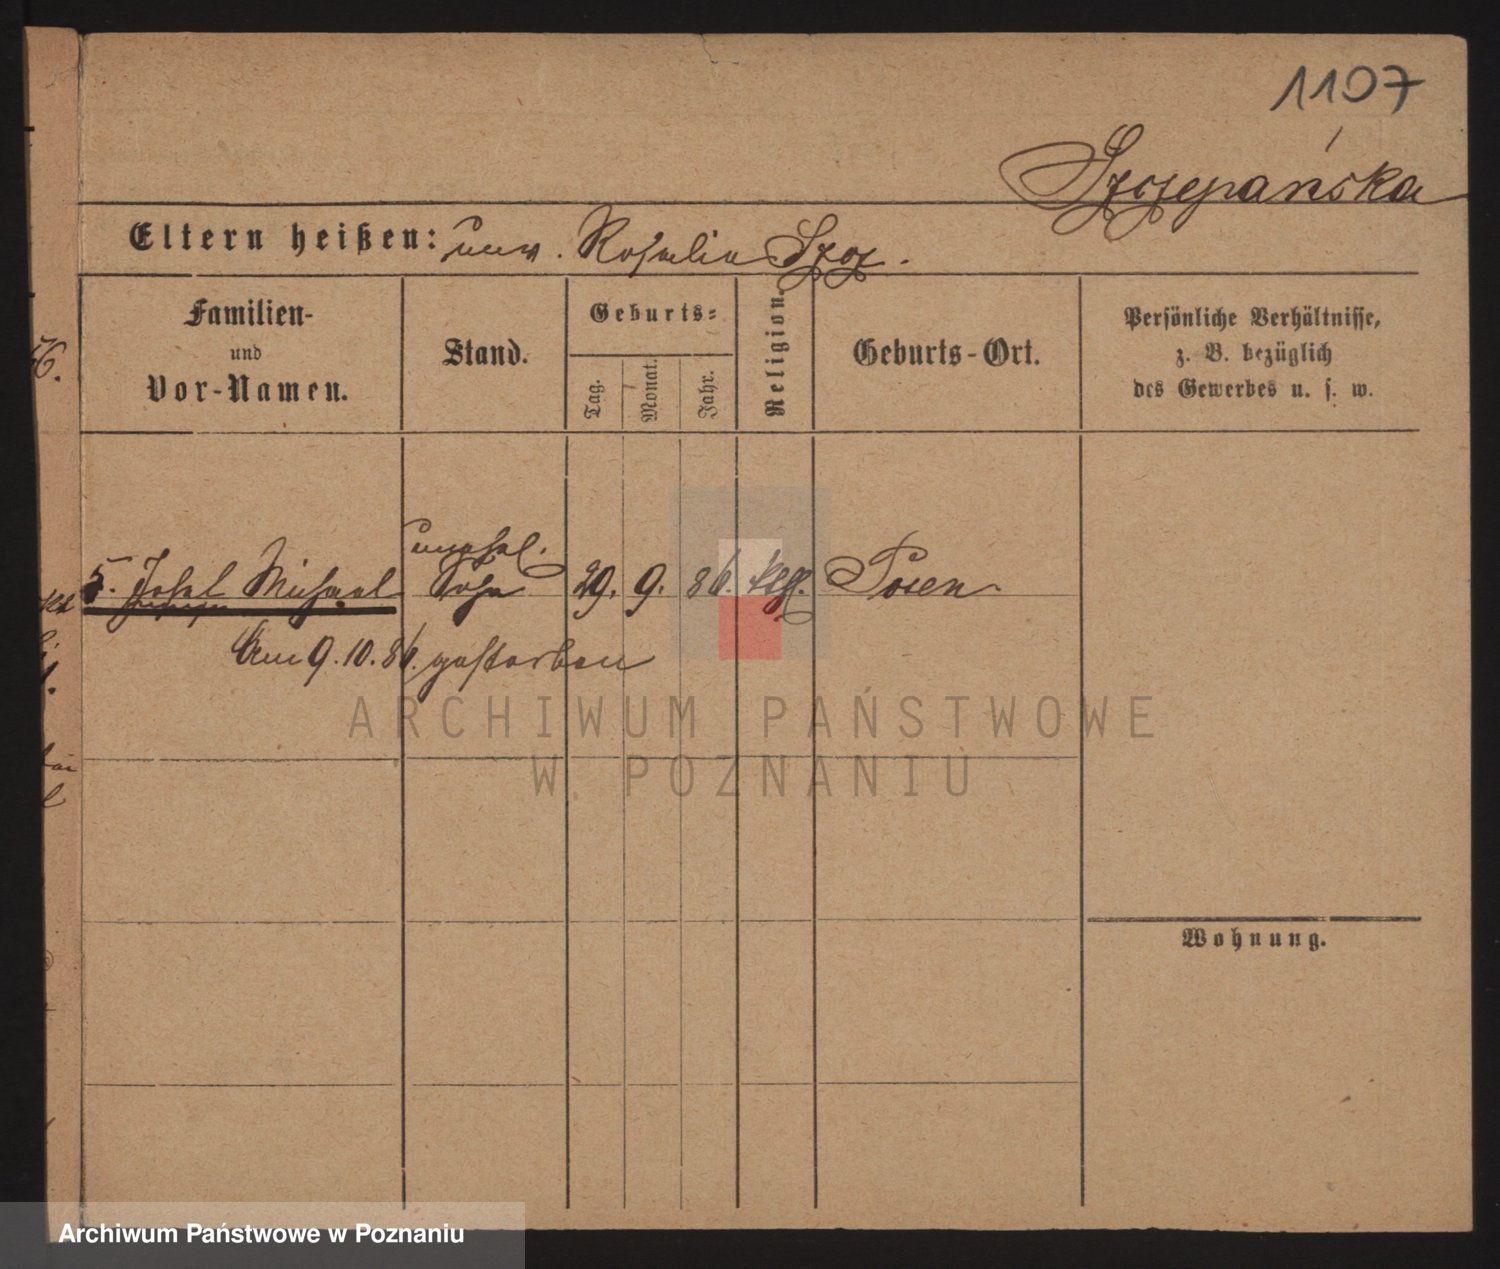 1107
Szczepańska
Eltern heißen: unv. Rosalie Szcz.
Familien-
und
Vor-Namen.
Stand.
Geburts-
Tag.
Monat.
Jahr.
Religion.
Geburts-Ort.
Persönliche Verhältnisse,
z. B. bezüglich
des Gewerbes u. s. w.
unehel.
5. Josef Michael Sohn 29. 9. 86. kth. Posen
Am 9. 10. 86. gestorben
ARCHIWUM PAŃSTWOWE
W POZNANIU
Wohnung.
Archiwum Państwowe w Poznaniu